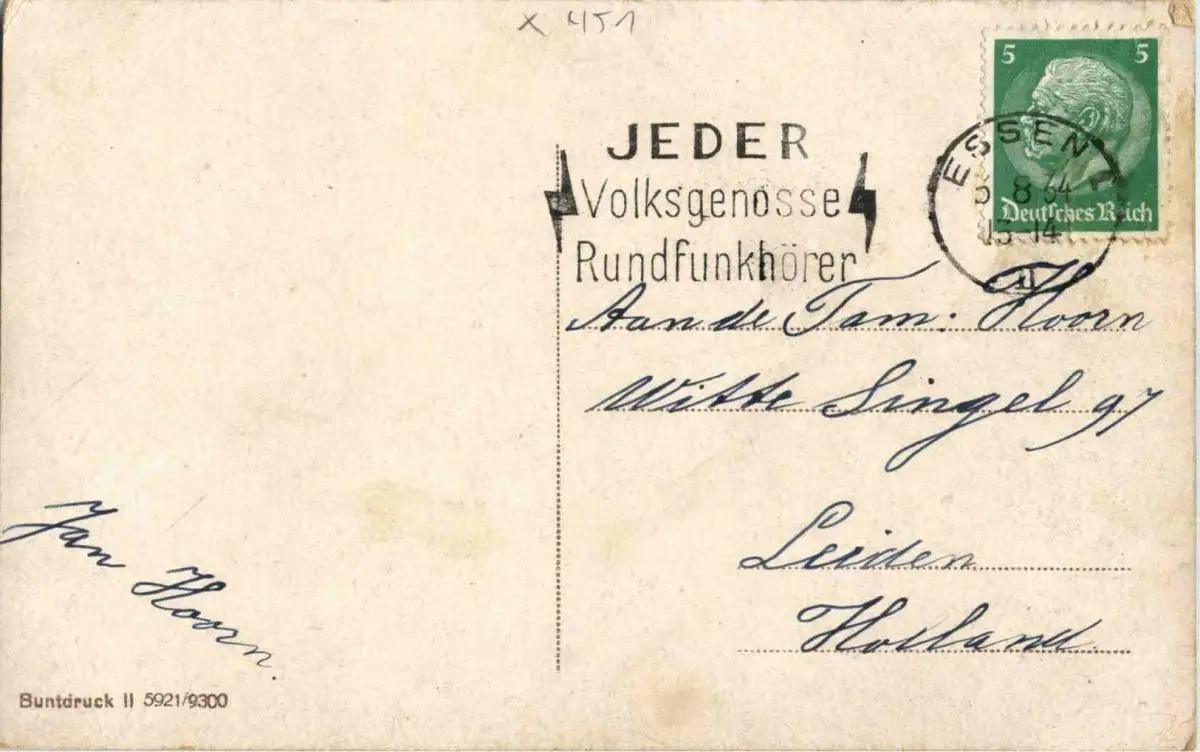 x 451
5 5
Deutsches Reich
ESSEN 1
8 34
13-14
JEDER
Volksgenosse
Rundfunkhörer
Aan de Fam: Hoorn
Witte Singel 97
Leiden
Holland.
Jan Hoorn.
Buntdruck II 5921/9300